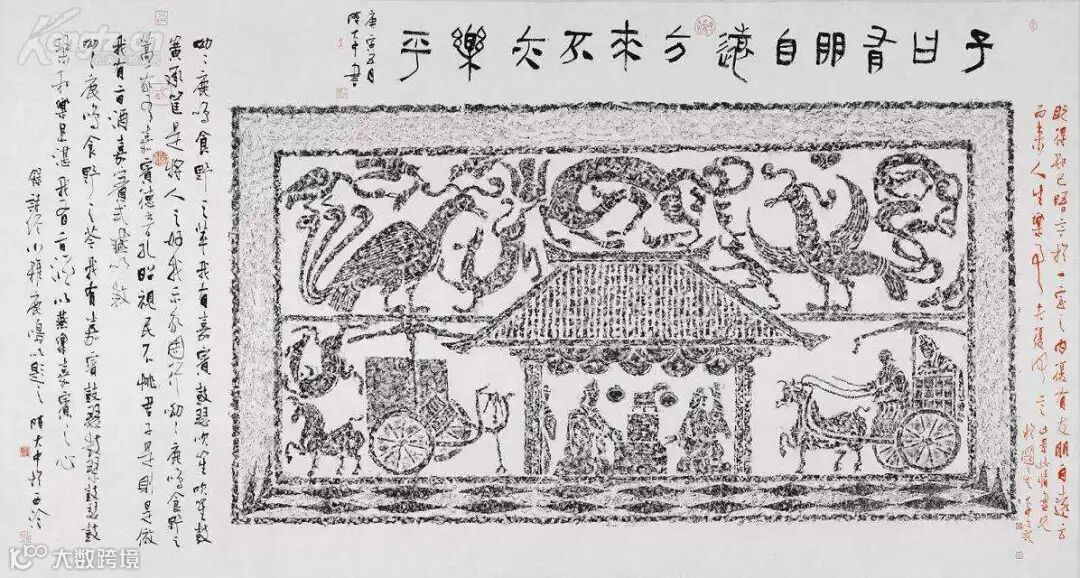 子曰有朋自遠方來不亦樂乎
庚寅五月
陳大中書
既得知己晤言於一室之內復有友朋自遠方
而來人生樂事
呦〻鹿鳴食野之苹我有嘉賓鼓瑟吹笙吹笙鼓
簧承筐是將人之好我示我周行呦〻鹿鳴食野之
蒿我有嘉賓德音孔昭視民不恌君子是則是傚
我有旨酒嘉賓式燕以敖
呦〻鹿鳴食野之芩我有嘉賓鼓瑟鼓琴鼓瑟鼓
琴和樂且湛我有旨酒以燕樂嘉賓之心
錄詩經小雅鹿鳴以題之陳大中於西泠
大数跨境